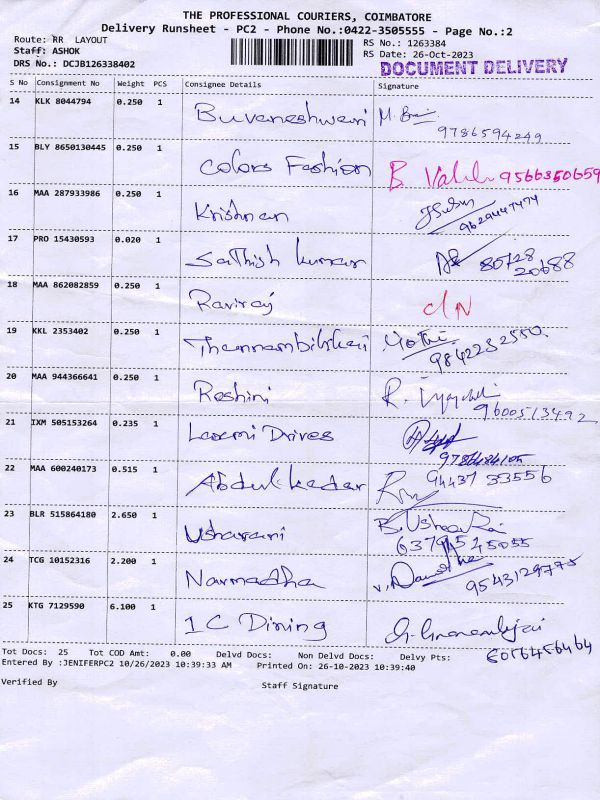 THE PROFESSIONAL COURIERS, COIMBATORE
Delivery Runsheet - PC2 - Phone No.:0422-3505555 - Page No.:2
Route: RR LAYOUT
Staff: ASHOK
DRS No.: DCJB126338402
RS No.: 1263384
RS Date: 26-Oct-2023
DOCUMENT DELIVERY
S No Consignment No Weight PCS Consignee Details Signature
14 KLK 8044794 0.250 1 Buvaneshwari M.
9786594249
15 BLY 8650130445 0.250 1 Colors Fashion B. 9566350659
16 MAA 287933986 0.250 1 Krishnan
9629447474
17 PRO 15430593 0.020 1 Sathish kumar 80728
20688
18 MAA 862082859 0.250 1 Raviraj
19 KKL 2353402 0.250 1
9842232550
20 MAA 944366641 0.250 1 Roshini R.
9600513492
21 IXM 505153264 0.235 1 Laxmi Drives
22 MAA 600240173 0.515 1 Abdul kadar 94437 33556
23 BLR 515864180 2.650 1 Usharani B. Usha Rani
24 TCG 10152316 2.200 1 Narmadha
9543129775
25 KTG 7129590 6.100 1 I C Dining
Tot Docs: 25 Tot COD Amt: 0.00 Delvd Docs: Non Delvd Docs: Delvy Pts:
Entered By :JENIFERPC2 10/26/2023 10:39:33 AM Printed On: 26-10-2023 10:39:40
Verified By Staff Signature